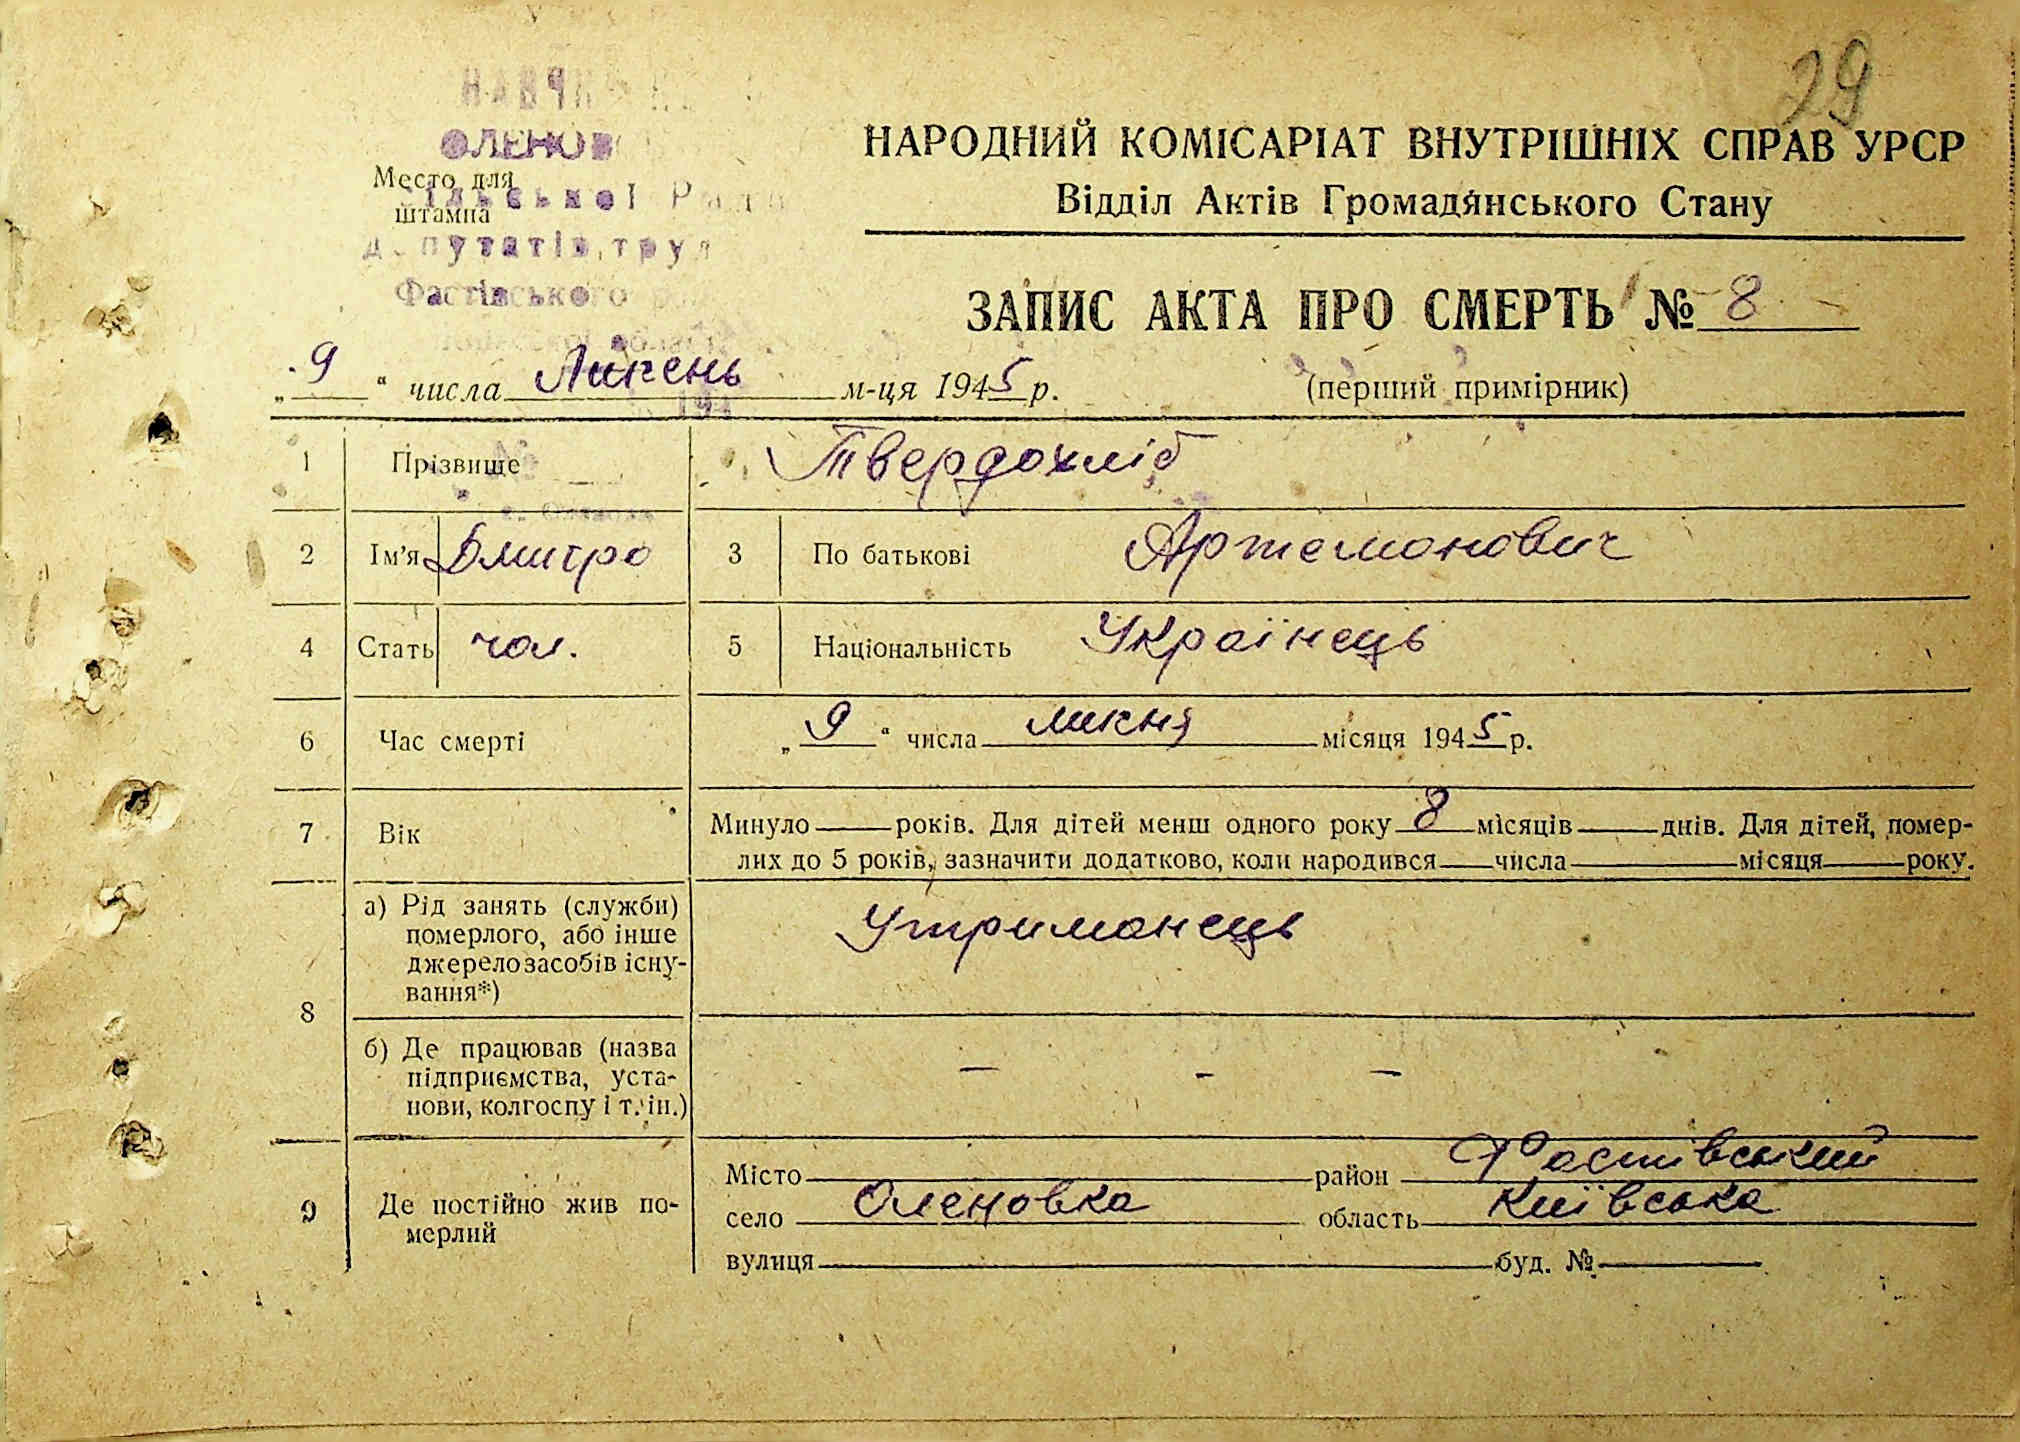 29
НАРОДНИЙ КОМІСАРІАТ ВНУТРІШНІХ СПРАВ УРСР
Відділ Актів Громадянського Стану
ОЛЕНОВ
Место для
штампа
ільської Ради
депутатів труд
Фастівського
ЗАПИС АКТА ПРО СМЕРТЬ № 8
„9“ числа Липень м-ця 1945 р.
(перший примірник)
1 Прізвище Твердохліб
2 Ім'я Дмитро 3 По батькові Артемонович
4 Стать чол. 5 Національність Українець
6 Час смерті „9“ числа липня місяця 1945 р.
7 Вік Минуло — років. Для дітей менш одного року 8 місяців — днів. Для дітей, помер-
лих до 5 років, зазначити додатково, коли народився — числа — місяця — року.
8 а) Рід занять (служби)
померлого, або інше
джерело засобів існу-
вання*)
Утриманець
б) Де працював (назва
підприємства, уста-
нови, колгоспу і т. ін.)
— — —
9 Де постійно жив по-
мерлий
Місто район Фастівський
село Оленовка область Київська
вулиця буд. №